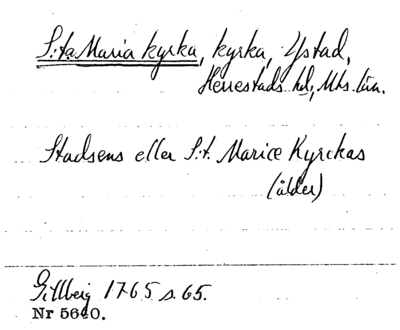 S:ta Maria kyrka, kyrka, Ystad,
Herrestads hd, Mhs. län.
Stadsens eller S:t. Mariæ Kyrckas
(ålder)
Gillberg 1765 s. 65.
Nr 5640.